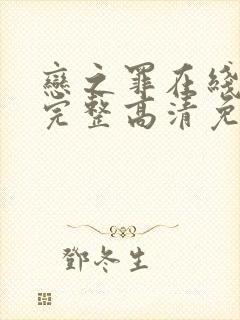 戀之罪在綫
完整高清免
鄧冬生